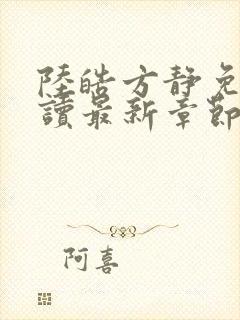 陸皓方靜免
讀最新章節
阿喜